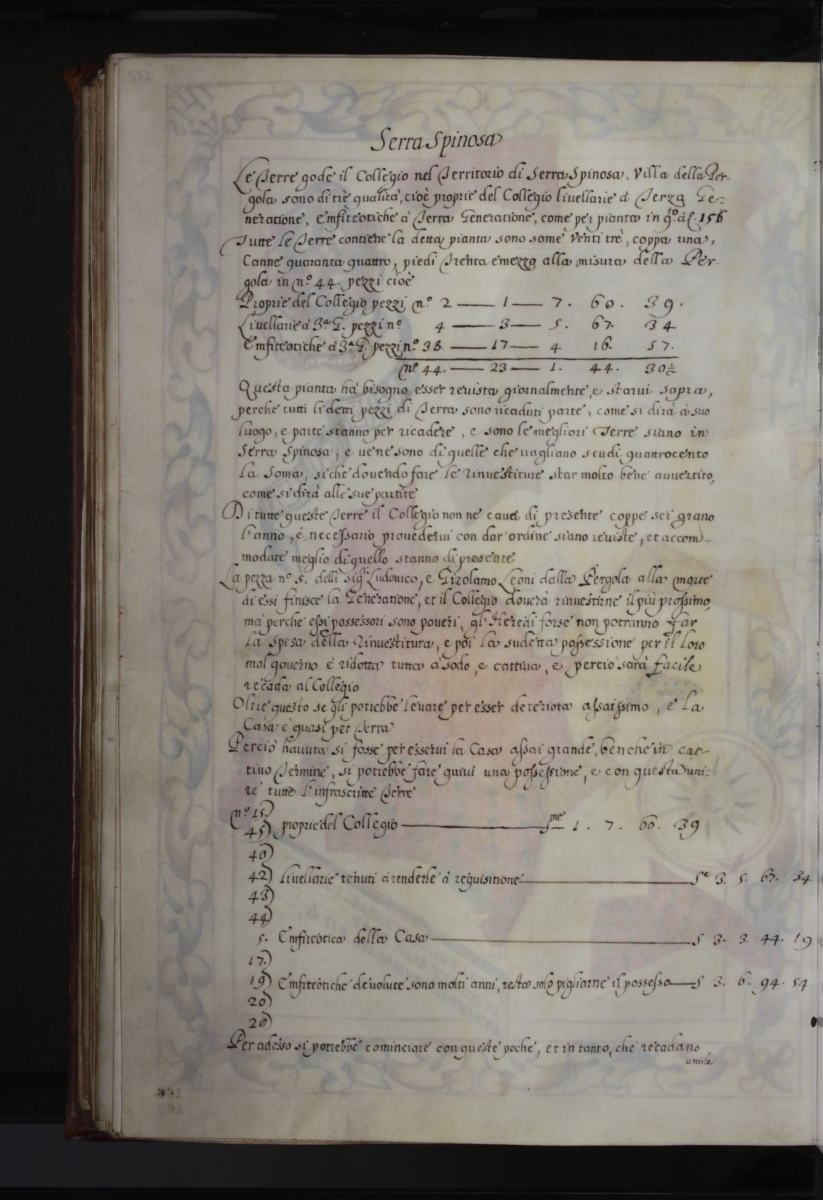 Serra Spinosa
Le Terre gode il Collegio nel Territorio di Serra Spinosa, Villa della Per-
gola sono di trè qualità, cioè proprie del Collegio livellarie à Terza Ge-
neratione, Emfiteotiche à Terza Generatione, come per pianta in q.º à f. 156
Tutte le Terre contiene la detta pianta sono some Venti trè, coppa una,
Canne quaranta quattro, piedi Trenta e mezzo alla misura della Per-
gola in nº. 44. pezzi cioè
Proprie del Collegio pezzi nº. 2 — 1 — 7. 60. 39.
Livellarie à 3ª G. pezzi nº 4 — 3 — 5. 67. 34
Emfiteotiche à 3ª G. pezzi nº. 38 — 17 — 4 16. 57.
nº 44. — 23 — 1. 44. 30½
Questa pianta hà bisogno esser revista giornalmente, e starvi sopra,
perche tutti li detti pezzi di Terra sono ricaduti parte, come si dirà à suo
luogo, e parte stanno per ricadere, e sono le megliori Terre siano in
Serra Spinosa, e ve ne sono di quelle che vagliano scudi quattrocento
la Soma, si che dovendo fare le rinvestiture star molto bene avvertito,
come si dirà alle sue partite
Di tutte queste Terre il Collegio non ne cava di presente coppe sei grano
l'anno, è necessario provedervi con dar ordine siano reviste, et accom-
modate meglio di quello stanno di presente
La pezza nº. 5. delli Sig.ri Ludovico, e Girolamo Leoni dalla Pergola alla morte
di essi finisce la Generatione, et il Collegio doverà rinvestirne il più prossimo,
mà perche essi possessori sono poveri, gl'Heredi forse non potranno far
la spesa della Rinvestitura, e poi la sudetta possessione per il loro
mal governo è ridotta tutta à sodo, e cattiva, e perciò sarà facile
recada al Collegio
Oltre questo se gli potrebbe levare per esser deteriorata assaissimo, e la
Casa è quasi per Terra
Perciò havuta si fosse per esservi la Casa assai grande, benche in cat-
tivo Termine, si potrebbe fare quivi una possessione, e con questa uni-
re tutte l'infrascritte Terre
nº. 15)
45) proprie del Collegio — 1. 7. 60. 39
40)
42) Livellarie tenuti à renderle à requisitione — S.e 3. 5. 67. 34
43)
44)
5. Emfiteotica della Casa — S 3. 3. 44. 19
17.)
19) Emfiteotiche devolute sono molti anni, resta solo pigliarne il possesso — S 3. 6. 94. 54
20)
26)
Per adesso si potrebbe cominciare con queste poche, et in tanto, che recadano